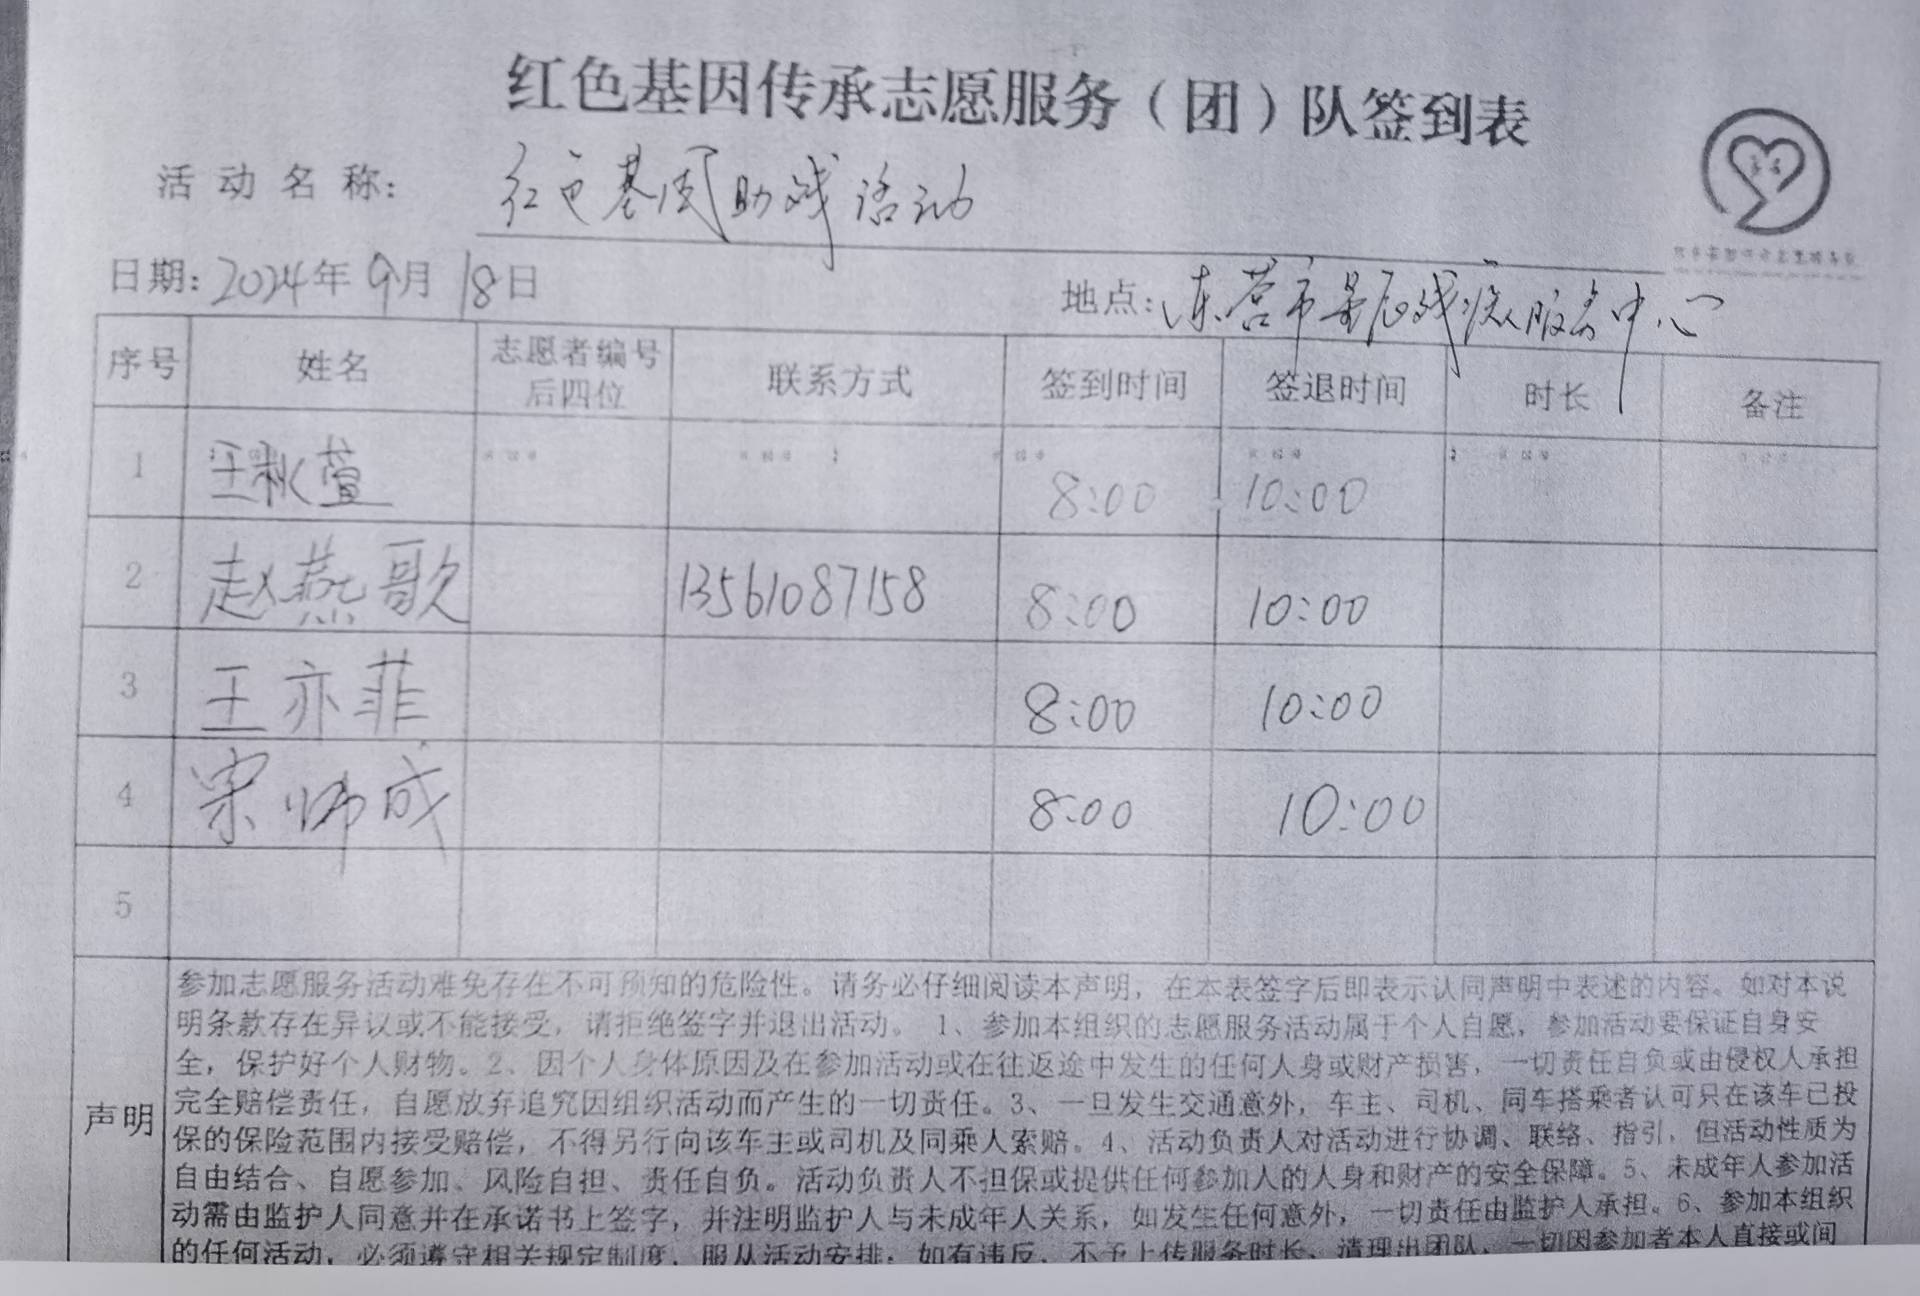 红色基因传承志愿服务（团）队签到表
活动名称: 红色基因助残活动
日期: 2024年9月18日 地点: 东营市星辰残疾人服务中心
序号 姓名 志愿者编号后四位 联系方式 签到时间 签退时间 时长 备注
1 王秋萱 8:00 10:00
2 赵燕歌 13561087158 8:00 10:00
3 王亦菲 8:00 10:00
4 宋帅成 8:00 10:00
5
声明
参加志愿服务活动难免存在不可预知的危险性。请务必仔细阅读本声明，在本表签字后即表示认同声明中表述的内容。如对本说
明条款存在异议或不能接受，请拒绝签字并退出活动。 1、参加本组织的志愿服务活动属于个人自愿，参加活动要保证自身安
全，保护好个人财物。2、因个人身体原因及在参加活动或在往返途中发生的任何人身或财产损害，一切责任自负或由侵权人承担
完全赔偿责任，自愿放弃追究因组织活动而产生的一切责任。3、一旦发生交通意外，车主、司机、同车搭乘者认可只在该车已投
保的保险范围内接受赔偿，不得另行向该车主或司机及同乘人索赔。4、活动负责人对活动进行协调、联络、指引，但活动性质为
自由结合、自愿参加、风险自担、责任自负。活动负责人不担保或提供任何参加人的人身和财产的安全保障。5、未成年人参加活
动需由监护人同意并在承诺书上签字，并注明监护人与未成年人关系，如发生任何意外，一切责任由监护人承担。6、参加本组织
的任何活动，必须遵守相关规定制度，服从活动安排；如有违反，不予上传服务时长、清理出团队，一切因参加者本人直接或间